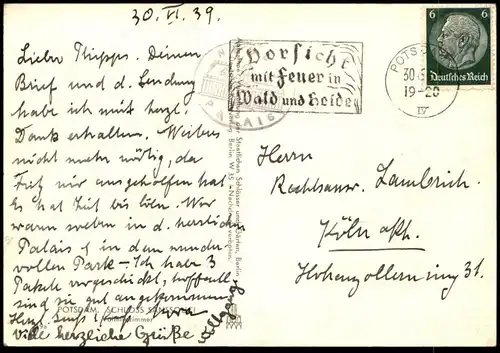 30. VI. 39.
Liebe Thipps. Deinen
Brief und d. Sendung
habe ich mit herzl.
Dank erhalten. Weiteres
nicht mehr nötig, da
Fritz mir ausgeholfen hat
Es hat Zeit bis Köln. Wir
waren soeben in d. herrlichen
Palais & in dem wunder
vollen Park – Ich habe 3
Pakete vorgeschickt, hoffentl.
sind sie gut angekommen
Herzl.
viele herzliche Grüße Wolfgang
POTSDAM, SCHLOSS SANSSOUCI
PALAIS
Vorsicht
mit Feuer in
Wald und Heide
POTSDAM
30.6.
19-20
IV
6 6
Deutsches Reich
Herrn
Rechtsanw. Lambrich.
Köln a/Rh.
Hohenzollernring 31.